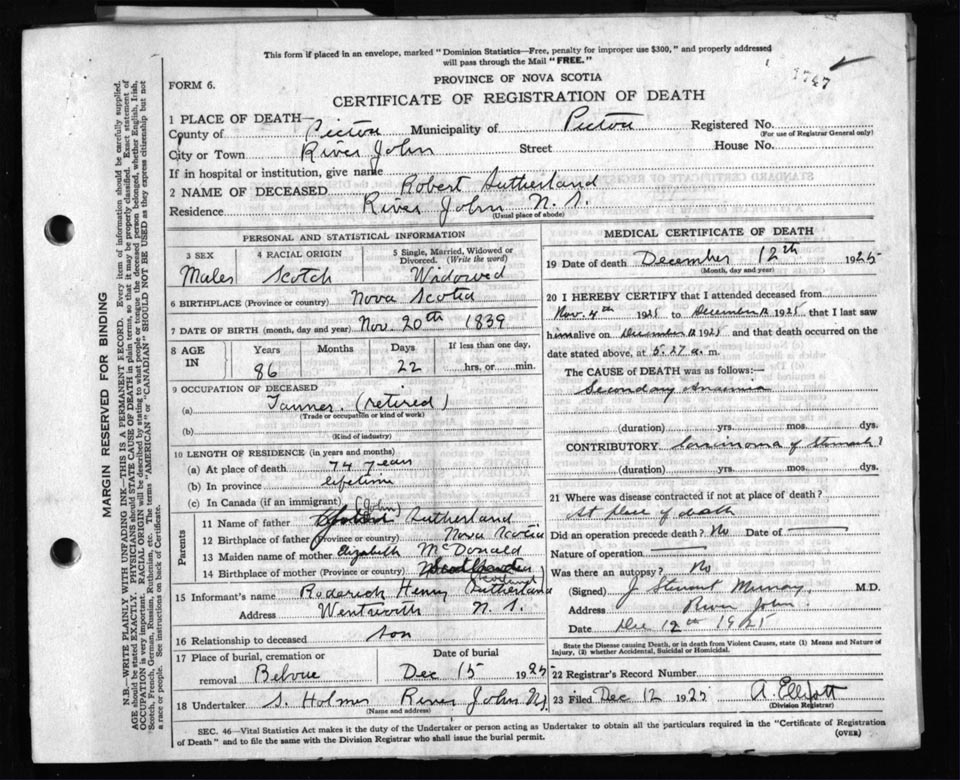 This form if placed in an envelope, marked "Dominion Statistics—Free, penalty for improper use $300," and properly addressed
will pass through the Mail "FREE."
1747
FORM 6.
PROVINCE OF NOVA SCOTIA
CERTIFICATE OF REGISTRATION OF DEATH
1 PLACE OF DEATH—
County of Pictou Municipality of Pictou Registered No.
(For use of Registrar General only)
City or Town River John Street House No.
If in hospital or institution, give name
2 NAME OF DECEASED Robert Sutherland
Residence River John N. S.
(Usual place of abode)
PERSONAL AND STATISTICAL INFORMATION
3 SEX 4 RACIAL ORIGIN 5 Single, Married, Widowed or Divorced. (Write the word)
Male Scotch Widowed
6 BIRTHPLACE (Province or country) Nova Scotia
7 DATE OF BIRTH (month, day and year) Nov. 20th 1839
8 AGE IN Years Months Days If less than one day,
86 22 hrs. or min.
9 OCCUPATION OF DECEASED
(a) Tanner. (retired)
(Trade or occupation or kind of work)
(b)
(Kind of industry)
10 LENGTH OF RESIDENCE (in years and months)
(a) At place of death 74 years
(b) In province lifetime
(c) In Canada (if an immigrant)
Parents
(John)
11 Name of father Sutherland
12 Birthplace of father (Province or country) Nova Scotia
13 Maiden name of mother Elizabeth McDonald
14 Birthplace of mother (Province or country)
(Scotland)
15 Informant's name Roderick Henry Sutherland
Address Wentworth N. S.
16 Relationship to deceased son
17 Place of burial, cremation or removal Date of burial
Belvue Dec 15 1925
18 Undertaker S. Holmes River John NS
(Name and address)
MEDICAL CERTIFICATE OF DEATH
19 Date of death December 12th 1925
(Month, day and year)
20 I HEREBY CERTIFY that I attended deceased from
Nov. 4th 1925 to December 12 1925 that I last saw
him alive on December 12 1925 and that death occurred on
date stated above, at 5.27 a. m.
The CAUSE of DEATH was as follows:—
Secondary Anaemia
(duration) yrs. mos. dys.
CONTRIBUTORY Carcinoma of Stomach?
(duration) yrs. mos. dys.
21 Where was disease contracted if not at place of death?
At place of death
Did an operation precede death? No Date of
Nature of operation
Was there an autopsy? No
(Signed) J Stewart Murray, M.D.
Address River John.
Date Dec 12th 1925
State the Disease causing Death, or in death from Violent Causes, state (1) Means and Nature of
Injury, (2) whether Accidental, Suicidal or Homicidal.
22 Registrar's Record Number
23 Filed Dec 12 1925 A. Elliott
(Division Registrar)
SEC. 46—Vital Statistics Act makes it the duty of the Undertaker or person acting as Undertaker to obtain all the particulars required in the "Certificate of Registration
of Death" and to file the same with the Division Registrar who shall issue the burial permit.
(OVER)
MARGIN RESERVED FOR BINDING
N.B.—WRITE PLAINLY WITH UNFADING INK—THIS IS A PERMANENT RECORD. Every item of information should be carefully supplied.
AGE should be stated EXACTLY. PHYSICIANS should STATE CAUSE OF DEATH in plain terms, so that it may be properly classified. Exact statement of
OCCUPATION is very important. RACIAL ORIGIN will be described by stating to what people or tongue the deceased person belonged, whether English, Irish,
Scotch, French, German, Russian, Ruthenian, etc. The terms "AMERICAN" or "CANADIAN" SHOULD NOT BE USED as they express citizenship but not
a race or people. See instructions on back of Certificate.